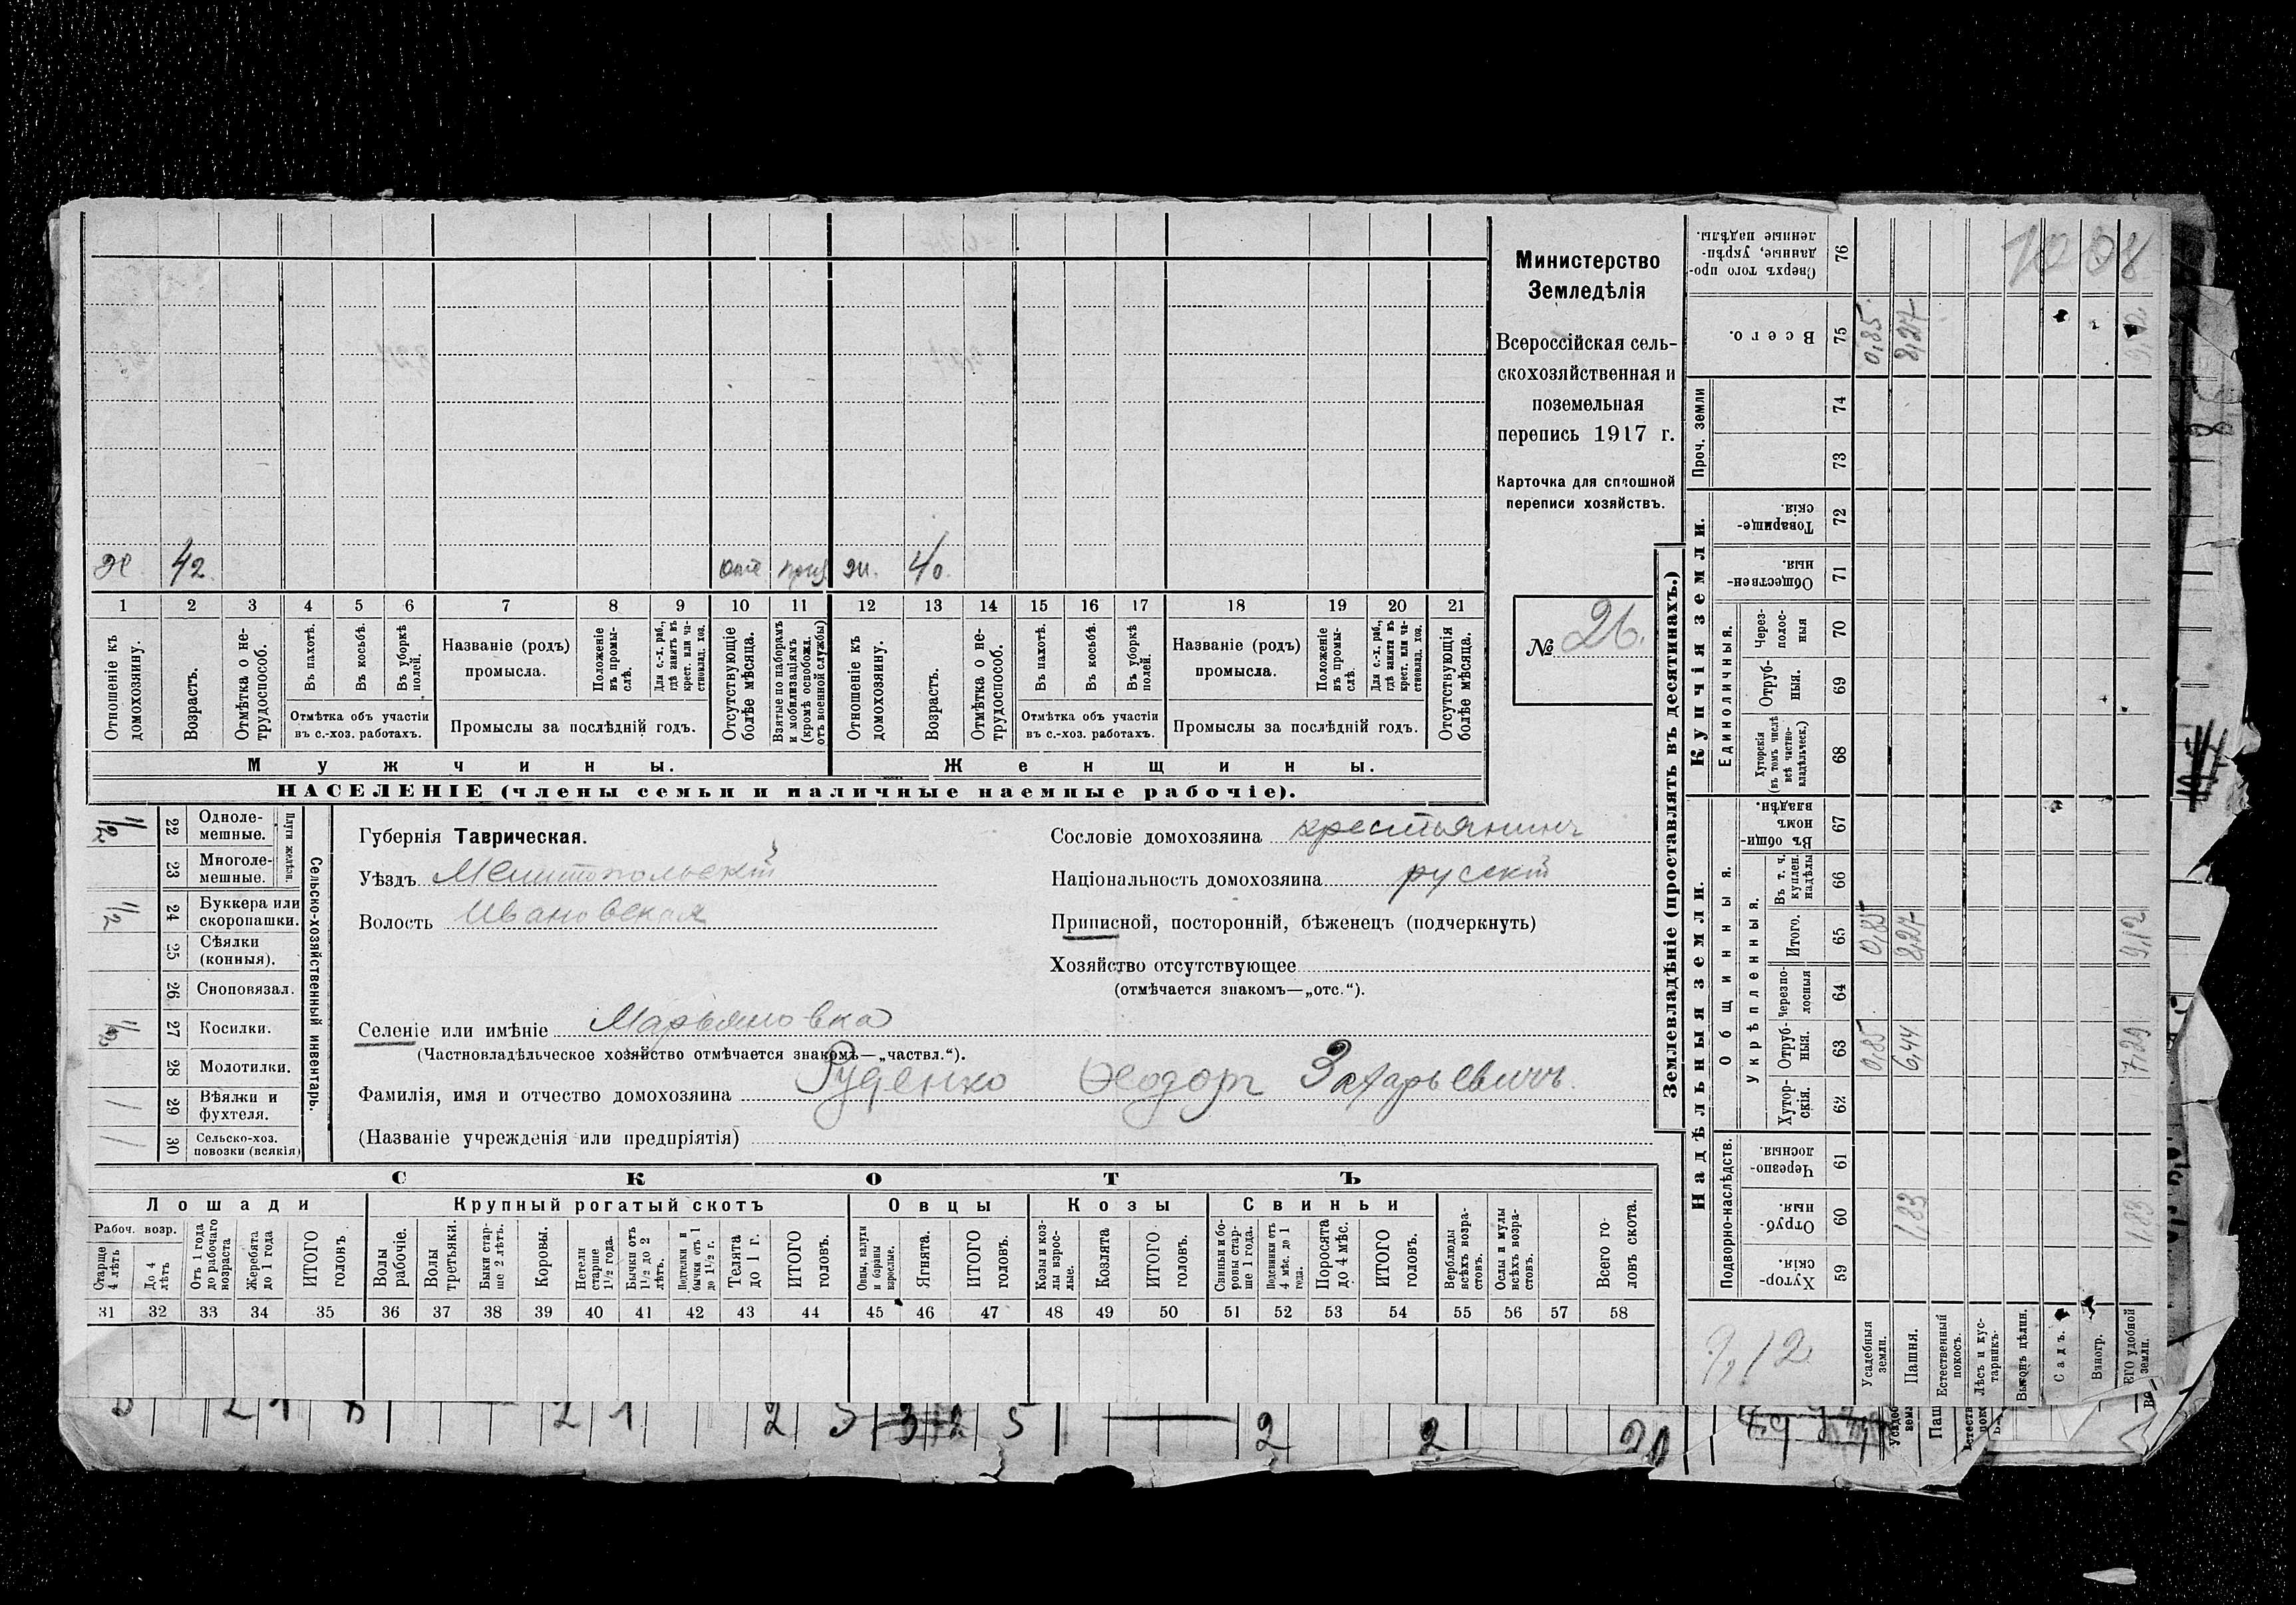 Министерство
Земледѣлія
Всероссійская сель-
скохозяйственная и
поземельная
перепись 1917 г.
Карточка для сплошной
переписи хозяйствъ.
№ 26.
Х 42. отс приз жи. 40.
1 2 3 4 5 6 7 8 9 10 11 12 13 14 15 16 17 18 19 20 21
Отношеніе къ домохозяину.
Возрастъ.
Отмѣтка о не-трудоспособ.
Въ пахотѣ.
Въ косьбѣ.
Въ уборкѣ полей.
Отмѣтка объ участіи
въ с.-хоз. работахъ.
Названіе (родъ)
промысла.
Положеніе въ промы-слѣ.
Для с.-х. раб., гдѣ занятъ въ крест. или ча-стновлад. хоз.
Промыслы за послѣдній годъ.
Отсутствующіе болѣе мѣсяца.
Взятые по наборамъ и мобилизаціямъ (кромѣ освобожд. отъ военной службы)
Отношеніе къ домохозяину.
Возрастъ.
Отмѣтка о не-трудоспособ.
Въ пахотѣ.
Въ косьбѣ.
Въ уборкѣ полей.
Отмѣтка объ участіи
въ с.-хоз. работахъ.
Названіе (родъ)
промысла.
Положеніе въ промы-слѣ.
Для с.-х. раб., гдѣ занята въ крест. или ча-стновлад. хоз.
Промыслы за послѣдній годъ.
Отсутствующія болѣе мѣсяца.
Мужчины. Женщины.
НАСЕЛЕНІЕ (члены семьи и наличные наемные рабочіе).
Сельско-хозяйственный инвентарь.
Плуги желѣзн.
1/2 22 Одноле-мешные.
23 Многоле-мешные.
1/2 24 Буккера или скоропашки.
25 Сѣялки (конныя).
26 Сноповязал.
27 Косилки.
28 Молотилки.
1 29 Вѣялки и фухтеля.
1 30 Сельско-хоз. повозки (всякія)
Губернія Таврическая.
Уѣздъ Мелитопольскій
Волость Ивановская
Сословіе домохозяина крестьянинъ
Національность домохозяина русскій
Приписной, посторонній, бѣженецъ (подчеркнуть)
Хозяйство отсутствующее
(отмѣчается знакомъ—„отс.“).
Селеніе или имѣніе Марьяновка
(Частновладѣльческое хозяйство отмѣчается знакомъ—„частвл.“).
Фамилія, имя и отчество домохозяина Руденко Ѳеодоръ Захарьевичъ.
(Названіе учрежденія или предпріятія)
СКОТЪ
Лошади Крупный рогатый скотъ Овцы Козы Свиньи
Рабоч. возр.
Старше 4 лѣтъ
До 4 лѣтъ
Отъ 1 года до рабочаго возраста
Жеребята до 1 года
ИТОГО головъ
Волы рабочіе.
Волы третьяки.
Быки стар-ше 2 лѣтъ.
Коровы.
Нетели старше 1½ года.
Бычки отъ 1½ до 2 лѣтъ.
Подтелки и бычки отъ 1 до 1½ г.
Телята до 1 г.
ИТОГО головъ.
Овцы, валухи и бараны взрослые.
Ягнята.
ИТОГО головъ.
Козы и коз-лы взрос-лые.
Козлята
ИТОГО головъ.
Свиньи и бо-ровы стар-ше 1 года.
Подсвинки отъ 4 мѣс. до 1 года.
Поросята до 4 мѣс.
ИТОГО головъ.
Верблюды всѣхъ возра-стовъ.
Ослы и мулы всѣхъ возра-стовъ.
Всего го-ловъ скота.
31 32 33 34 35 36 37 38 39 40 41 42 43 44 45 46 47 48 49 50 51 52 53 54 55 56 57 58
Землевладѣніе (проставлять въ десятинахъ.)
Надѣльныя земли. Купчія земли.
Подворно-наслѣдств.
Общинныя.
Укрѣпленныя.
Единоличныя.
Проч. земли
Хутор-скія. 59
Отруб-ныя. 60
Черезпо-лосныя. 61
Хутор-скія. 62
Отруб-ныя. 63
Черезпо-лосныя 64
Итого. 65
Въ т. ч. куплен. надѣлы 66
Въ общи-номъ владѣн. 67
Хуторскія (въ томъ числѣ всѣ частно-владѣльческ.) 68
Отруб-ныя. 69
Через-полос-ныя 70
Обществен-ныя. 71
Товарище-скія. 72
73
74
Всего. 75
Сверхъ того про-данные, укрѣп-ленные надѣлы. 76
Усадебныя земли. 0,85 0,85 0,85
Пашня. 1,83 6,44 8,27 8,27
Естественный покосъ.
Лѣсъ и кус-тарникъ.
Выгонъ цѣлин.
Садъ.
Виногр.
ЕГО удобной земли. 1,83 7,29 9,12 9,12
9,12